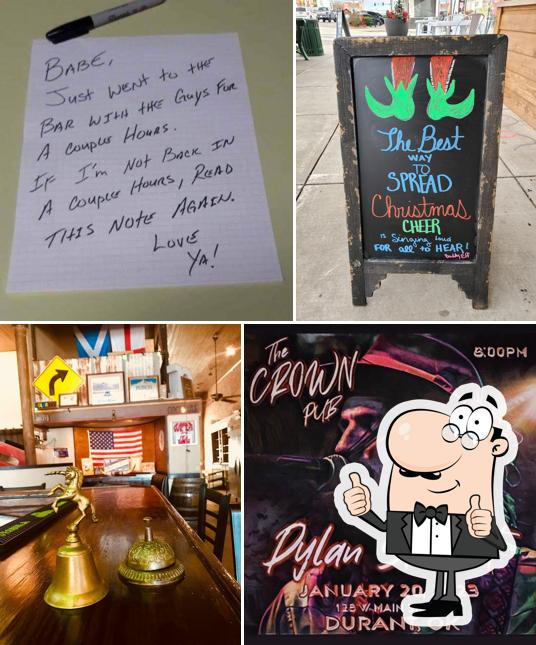 BABE,
JUST WENT TO THE
BAR WITH THE GUYS FOR
A COUPLE HOURS.
IF I'm NOT BACK IN
A COUPLE HOURS, READ
THIS NOTE AGAIN.
LOVE
YA!
The Best
WAY
TO
SPREAD
Christmas
CHEER
is Singing Loud
FOR all to HEAR!
Buddy Elf
The
CROWN
PUB
8:00PM
Dylan
JANUARY 20
3
128 W MAIN
DURANT, OK